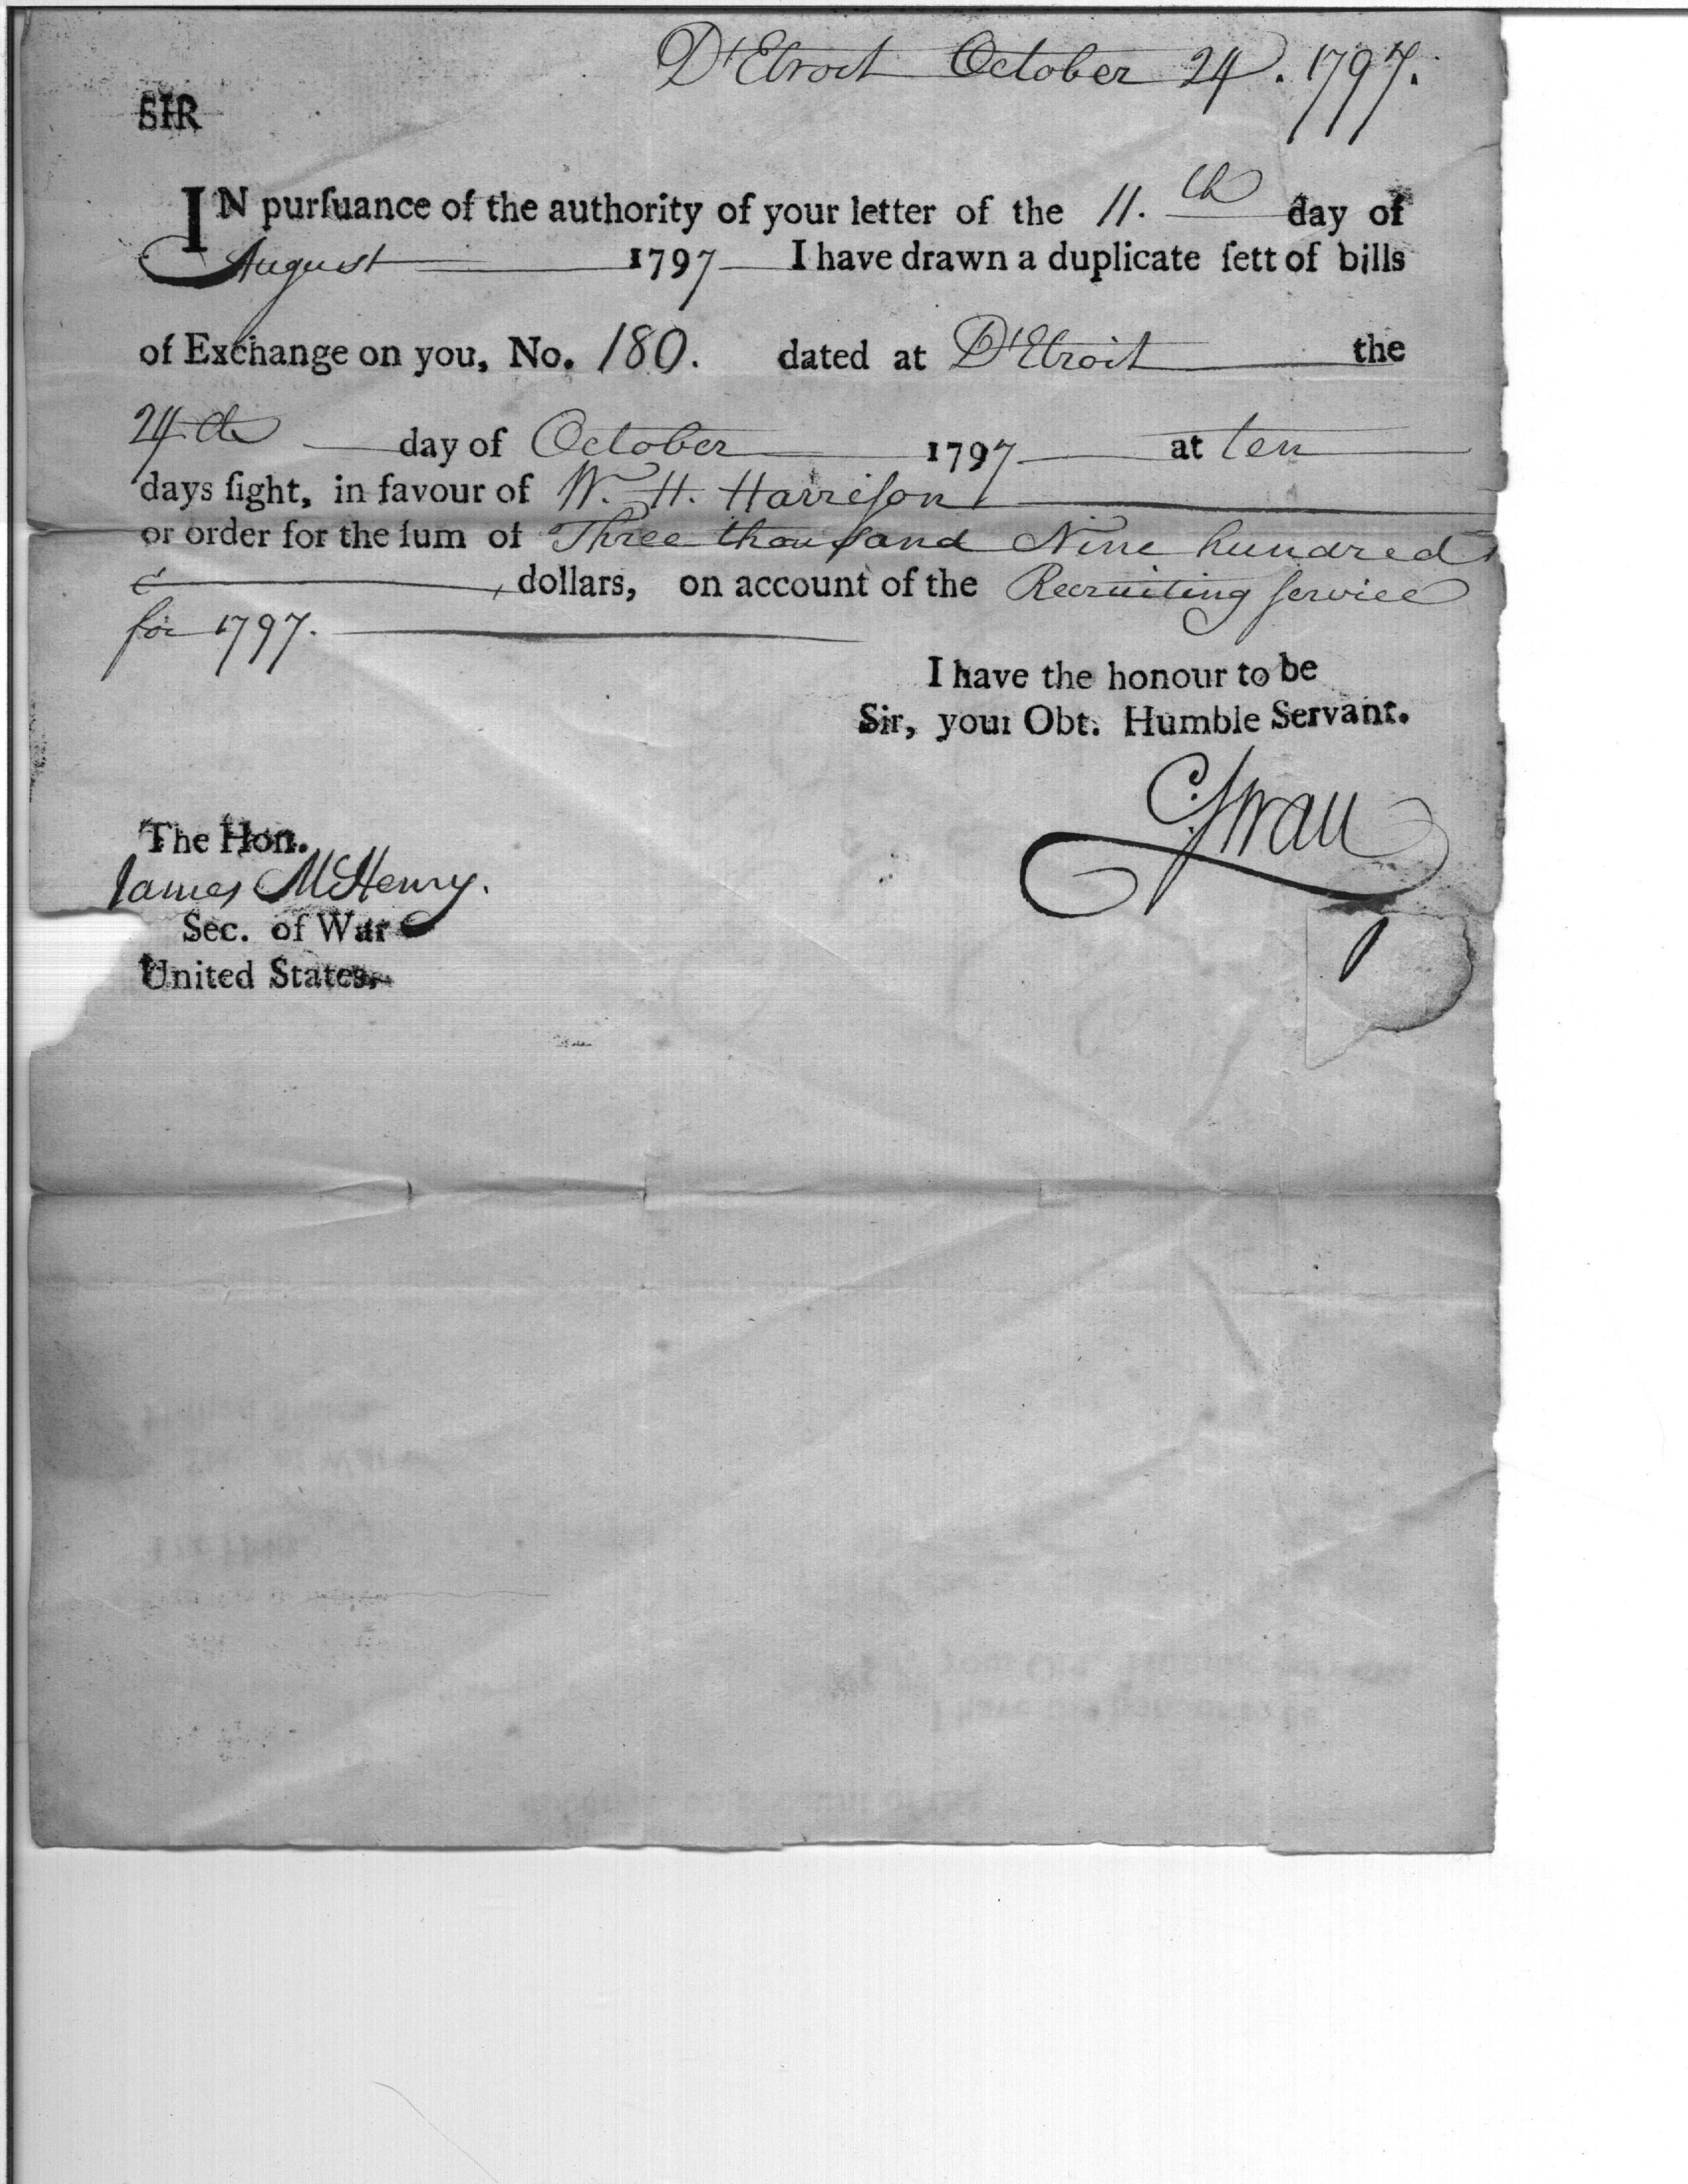 D'Etroit October 24. 1797.
SIR
IN purſuance of the authority of your letter of the 11.th day of
August 1797 I have drawn a duplicate ſett of bills
of Exchange on you, No. 180. dated at D'Etroit the
24th day of October 1797 at ten
days ſight, in favour of W. H. Harriſon
or order for the ſum of Three thouſand Nine hundred
dollars, on account of the Recruiting ſervice
for 1797.
I have the honour to be
Sir, your Obt. Humble Servant.
C. Swan
The Hon.
James McHenry.
Sec. of War
United States.